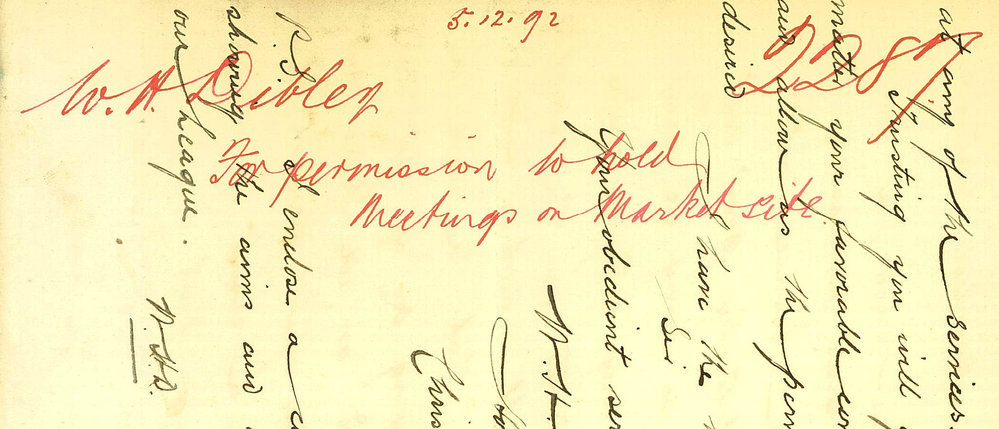 5.12.92
2287
W. H. Dibley
For permission to hold
Meetings on Market site
at any of the services.
Trusting you will
matter your favorable con
and allow us the per
desired
I have the
Sir
Your obedient ser
W. H.
Chris
P.S. I enclose a
showing the aims and
our League.
W.H.D.